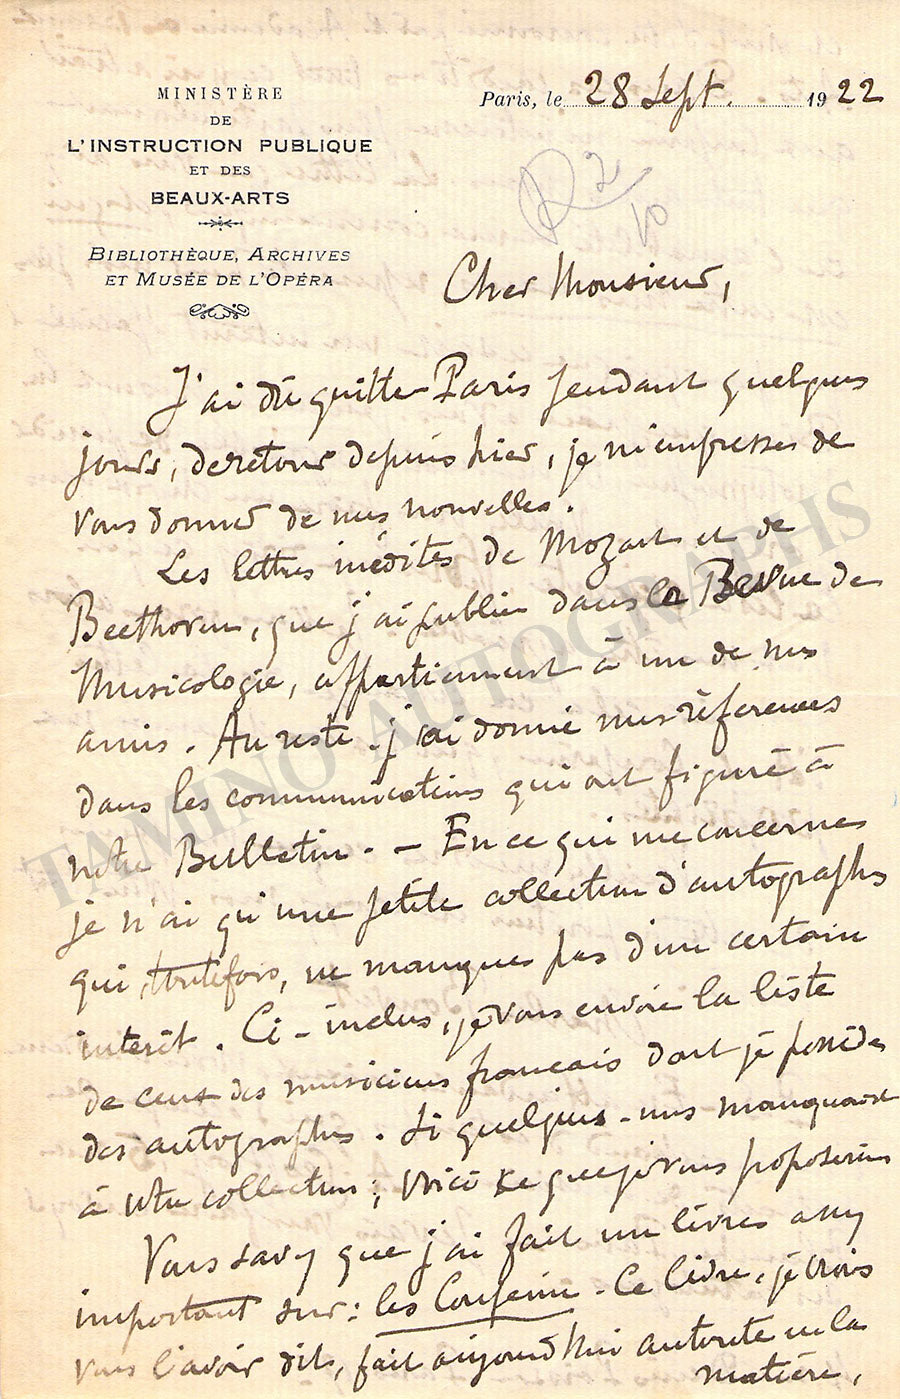 MINISTÈRE
DE
L'INSTRUCTION PUBLIQUE
ET DES
BEAUX-ARTS
BIBLIOTHÈQUE, ARCHIVES
ET MUSÉE DE L'OPÉRA
Paris, le 28 Sept. 1922
Cher Monsieur,
J'ai dû quitter Paris pendant quelques
jours, de retour depuis hier, je m'empresse de
vous donner de mes nouvelles.
Les lettres inédites de Mozart et de
Beethoven, que j'ai publiées dans la Revue de
Musicologie, appartiennent à un de mes
amis. Au reste j'ai donné mes références
dans les communications qui ont figuré à
notre Bulletin. — En ce qui me concerne
je n'ai qu'une petite collection d'autographes
qui, toutefois, ne manque pas d'un certain
intérêt. Ci-inclus, je vous envoie la liste
de ceux des musiciens français dont je possède
des autographes. Si quelques-uns manquaient
à votre collection, voici ce que je vous proposerais
Vous savez que j'ai fait un livre assez
important sur: les Couperin. Ce livre, je crois
vous l'avoir dit, fait aujourd'hui autorité en la
matière,
TAMINO AUTOGRAPHS